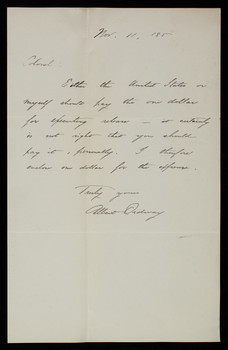 Nov. 11, 185
Colonel
Either the United States or
myself should pay the one dollar
for expenditing release - it certainly
is not right that you should
pay it, personally. I therefore
enclose one dollar for the expense.
Truly yours
Albert Ordway